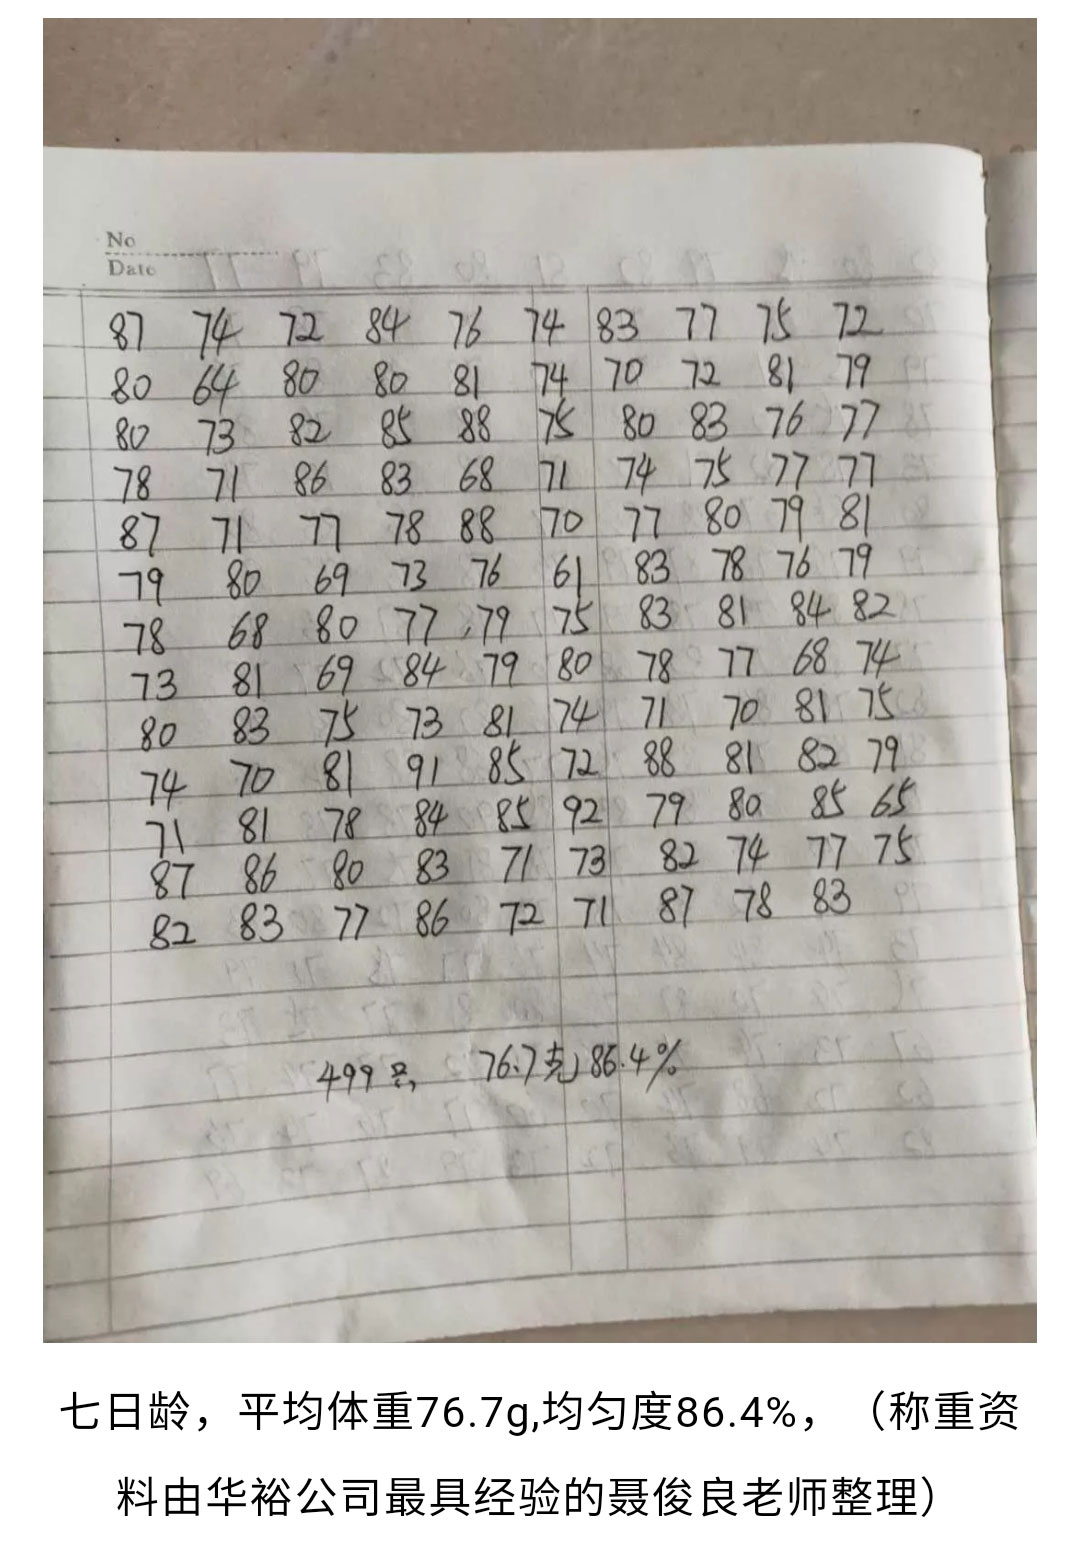 No
Date
87 74 72 84 76 74 83 77 75 72
80 64 80 80 81 74 70 72 81 79
80 73 82 85 88 75 80 83 76 77
78 71 86 83 68 71 74 75 77 77
87 71 77 78 88 70 77 80 79 81
79 80 69 73 76 61 83 78 76 79
78 68 80 77 79 75 83 81 84 82
73 81 69 84 79 80 78 77 68 74
80 83 75 73 81 74 71 70 81 75
74 70 81 91 85 72 88 81 82 79
71 81 78 84 85 92 79 80 85 65
87 86 80 83 71 73 82 74 77 75
82 83 77 86 72 71 87 78 83
499只, 76.7克, 86.4%
七日龄，平均体重76.7g,均匀度86.4%，（称重资
料由华裕公司最具经验的聂俊良老师整理）